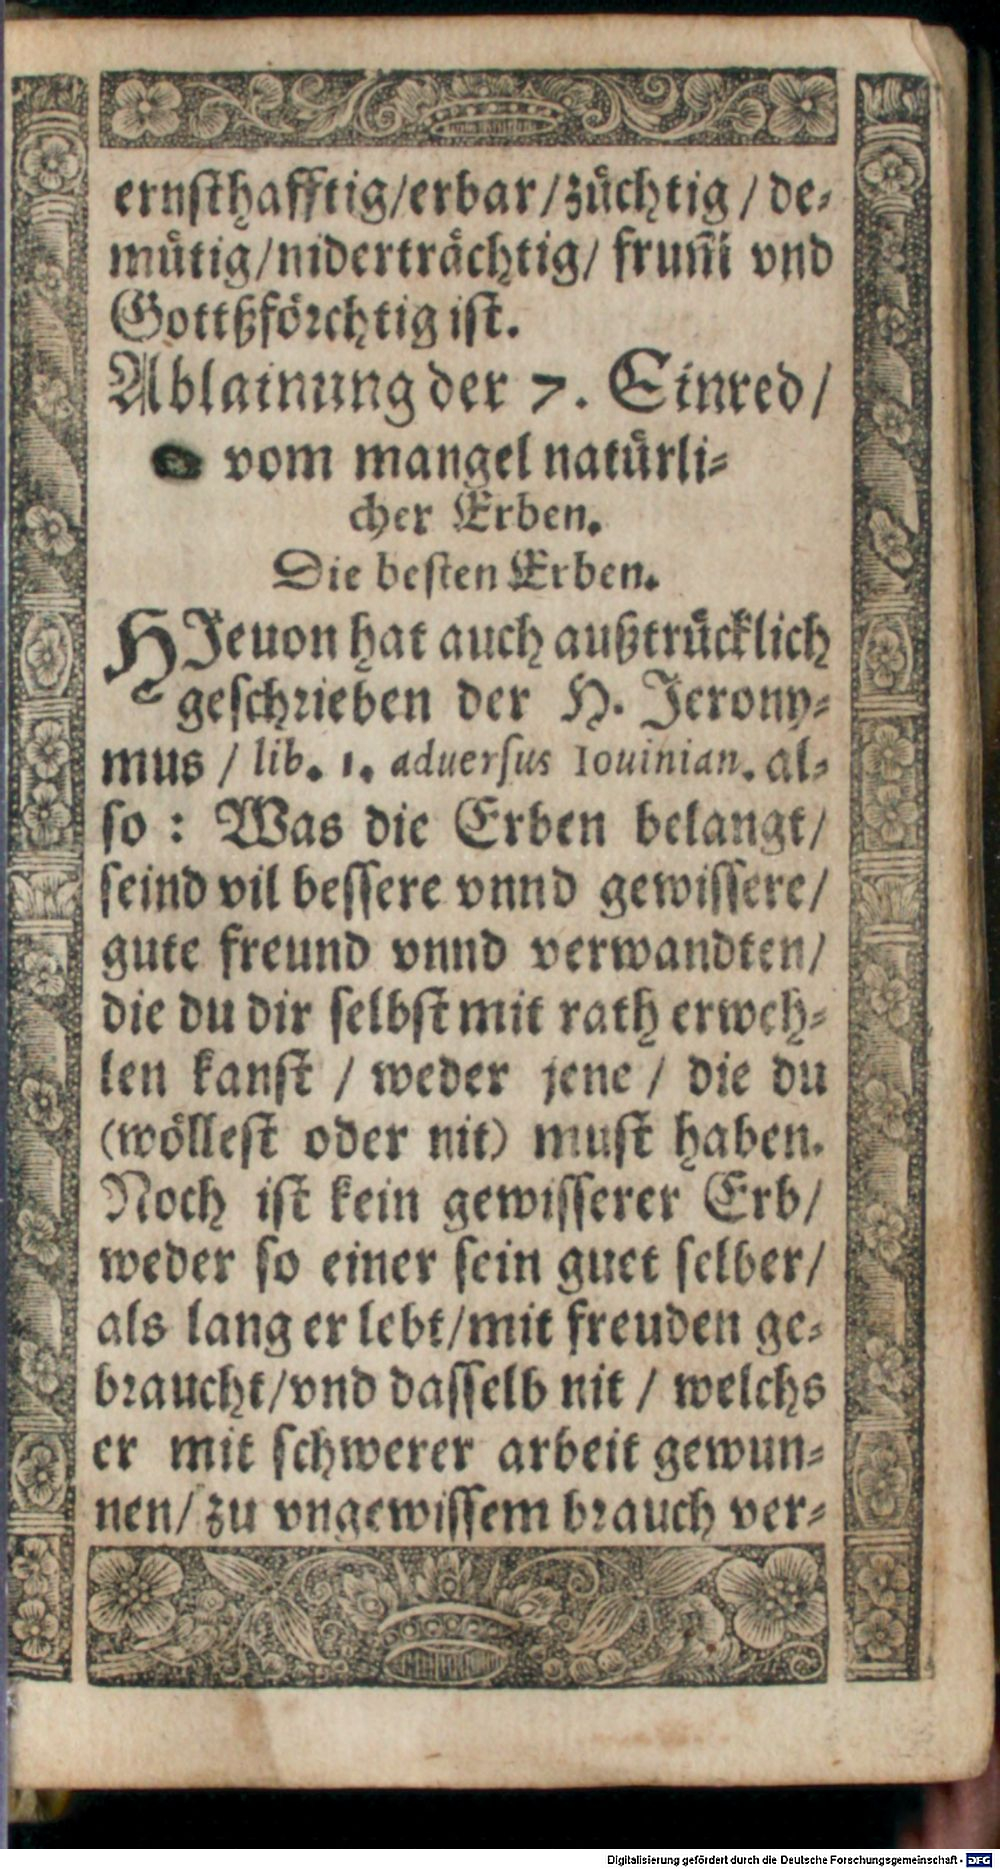 ernsthafftig/erbar/züchtig/de⸗
mütig/niderträchtig/ frum̃ vnd
Gottßförchtig ist.
Ablainung der 7. Einred/
vom mangel natürli⸗
cher Erben.
Die besten Erben.
HJeuon hat auch außtrücklich
geschrieben der H. Jerony⸗
mus / lib. 1. aduersus Iouinian. al⸗
so : Was die Erben belangt/
seind vil bessere vnnd gewissere/
gute freund vnnd verwandten/
die du dir selbst mit rath erweh⸗
len kanst / weder jene / die du
(wöllest oder nit) must haben.
Noch ist kein gewisserer Erb/
weder so einer sein guet selber/
als lang er lebt/mit freuden ge⸗
braucht/vnd dasselb nit / welchs
er mit schwerer arbeit gewun⸗
nen/ zu vngewissem brauch ver⸗
Digitalisierung gefördert durch die Deutsche Forschungsgemeinschaft - DFG